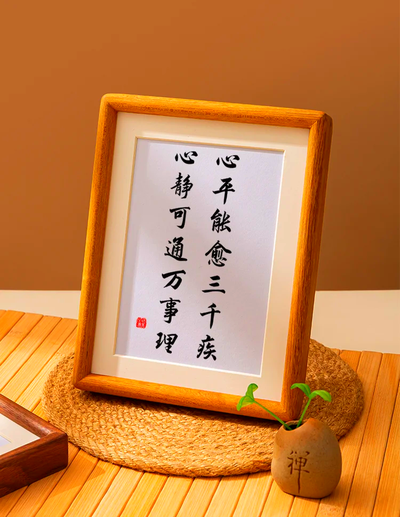 心平能愈三千疾
心静可通万事理
禅